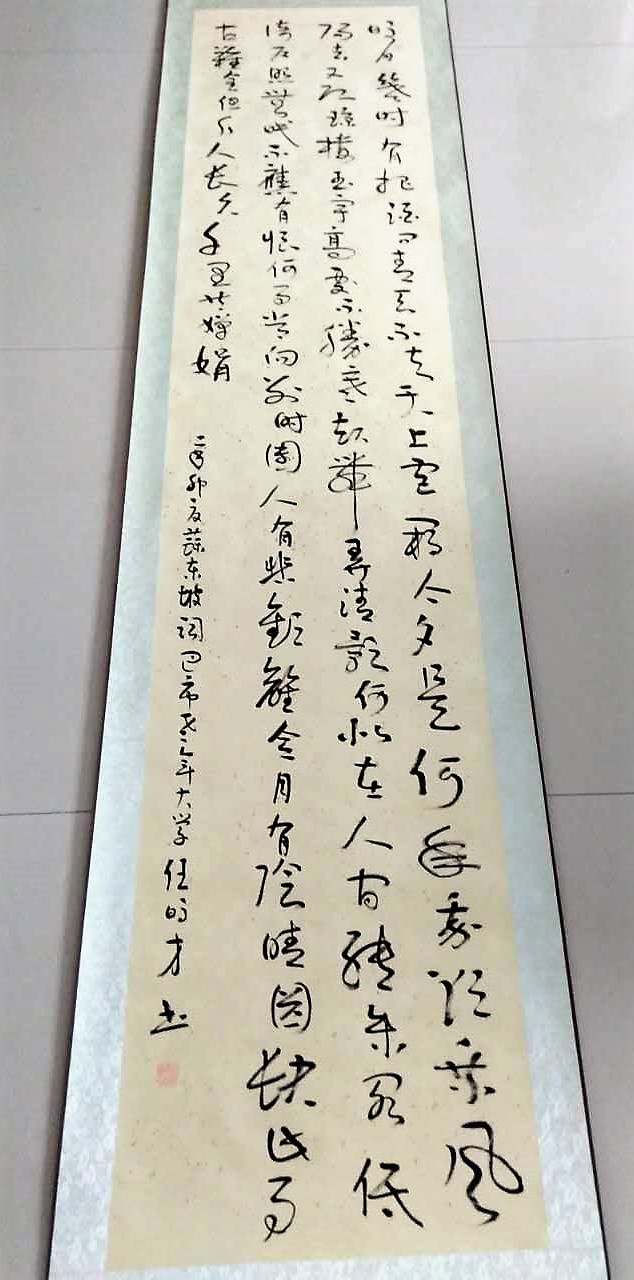 明月幾时有把酒问青天不知天上宫阙今夕是何年我欲乘风
归去又恐瓊楼玉宇高處不勝寒起舞弄清影何似在人间转朱阁低
绮户照無眠不應有恨何事长向别时圆人有悲歡離合月有陰晴圆缺此事
古難全但願人長久千里共嬋娟
辛卯夏蘇东坡词巴市老年大学任明才书